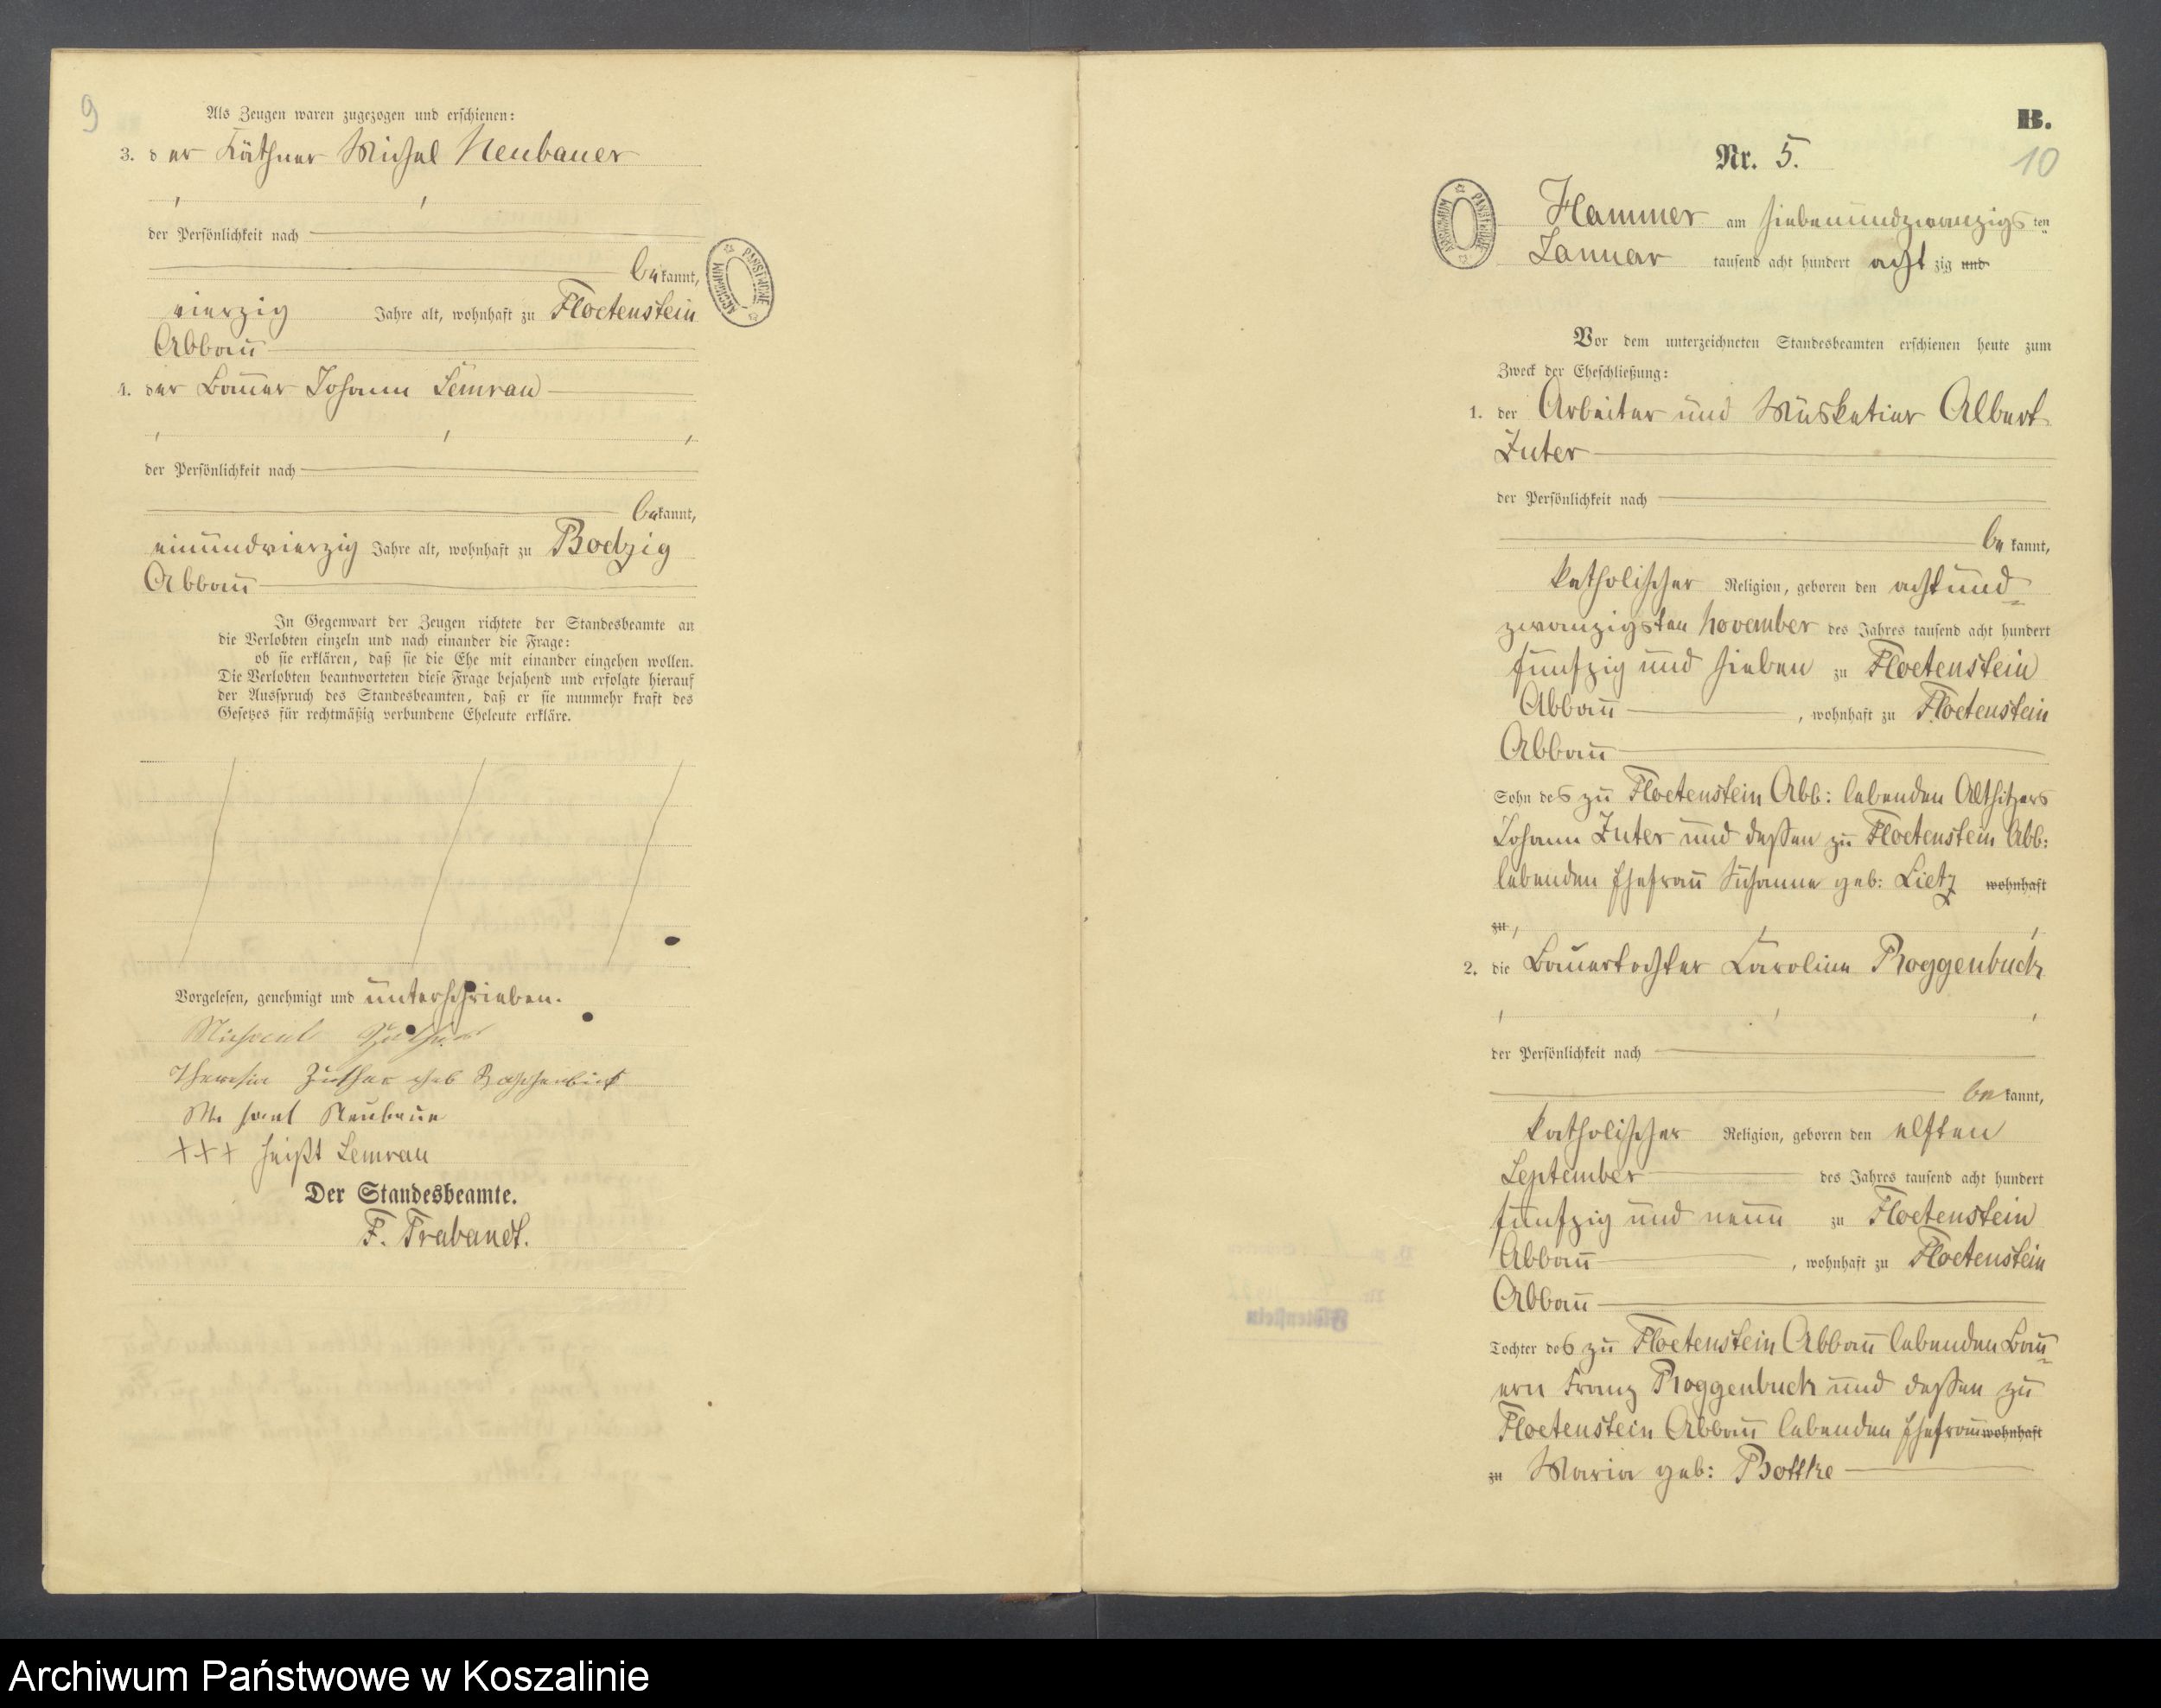 9
Als Zeugen waren zugezogen und erschienen:
3. der Käthner Michal Neubauer
der Persönlichkeit nach
bekannt,
vierzig Jahre alt, wohnhaft zu Floetenstein
Abbau
4. der Bauer Johann Lemrau
der Persönlichkeit nach
bekannt,
einundvierzig Jahre alt, wohnhaft zu Bodzig
Abbau
In Gegenwart der Zeugen richtete der Standesbeamte an
die Verlobten einzeln und nach einander die Frage:
ob sie erklären, daß sie die Ehe mit einander eingehen wollen.
Die Verlobten beantworteten diese Frage bejahend und erfolgte hierauf
der Ausspruch des Standesbeamten, daß er sie nunmehr kraft des
Gesetzes für rechtmäßig verbundene Eheleute erkläre.
Vorgelesen, genehmigt und unterschrieben.
Michael
Theresia Zuther geb
Neubauer
+++ heißt Lemrau
Der Standesbeamte.
F. Trabandt.
ARCHIWUM PAŃSTWOWE
B.
10
Nr. 5.
ARCHIWUM PAŃSTWOWE
Hammer am siebenundzwanzigsten
Januar tausend acht hundert achtzig und
Vor dem unterzeichneten Standesbeamten erschienen heute zum
Zweck der Eheschließung:
1. der Arbeiter und Musketier Albert
Zuter
der Persönlichkeit nach
bekannt,
katholischer Religion, geboren den achtund=
zwanzigsten November des Jahres tausend acht hundert
fünfzig und sieben zu Floetenstein
Abbau, wohnhaft zu Floetenstein
Abbau
Sohn des zu Floetenstein Abb: lebenden Altsitzers
Johann Zuter und deßen zu Floetenstein Abb:
lebenden Ehefrau Susanna geb: Lietz wohnhaft
zu
2. die Bauertochter Caroline Roggenbuck
der Persönlichkeit nach
bekannt,
katholischer Religion, geboren den elften
September des Jahres tausend acht hundert
fünfzig und neun zu Floetenstein
Abbau, wohnhaft zu Floetenstein
Abbau
Tochter des zu Floetenstein Abbau lebenden Bau=
ern Franz Roggenbuck und deßen zu
Floetenstein Abbau lebenden Ehefrau wohnhaft
zu Maria geb: Bottke
Archiwum Państwowe w Koszalinie